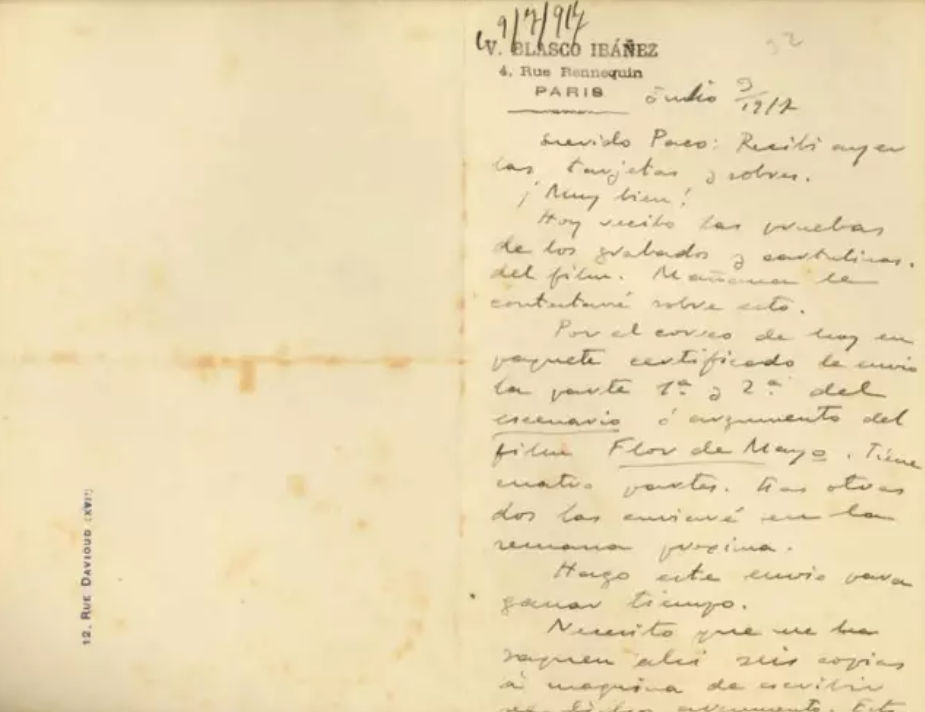 9/7/917
V. BLASCO IBÁÑEZ
4, Rue Rennequin
PARIS
32
Julio 9/1917
Querido Paco: Recibí ayer
las tarjetas y sobres.
¡Muy bien!
Hoy recibo las pruebas
de los grabados y cartulinas.
del film. Mañana le
contestaré sobre esto.
Por el correo de hoy en
paquete certificado le envio
la parte 1ª y 2ª del
escenario ó argumento del
film Flor de Mayo. Tiene
cuatro partes. Las otras
dos las enviaré en la
semana proxima.
Hago este envio para
ganar tiempo.
Necesito que me ha
saquen ahi seis copias
á maquina de escribir
de dicho argumento. Esto
12, RUE DAVIOUD (XVIᵉ)